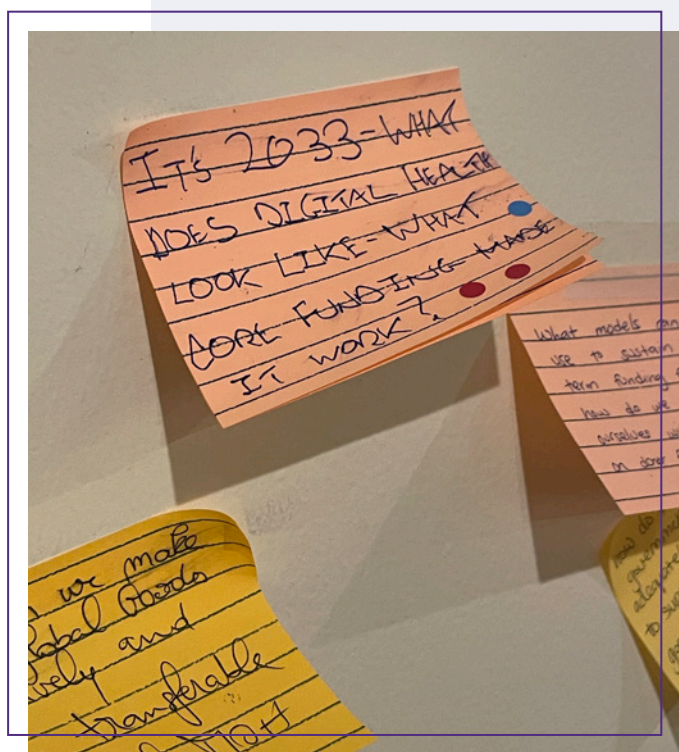 IT'S 2033-WHAT
DOES DIGITAL HEALTH
LOOK LIKE-WHAT
CORE FUNDING MADE
IT WORK?
What models can
use to sustain
term funding
how do we
ourselves
on donor
we make
Global Goods
and
transferable
MOH
how do
governme
adequate
to